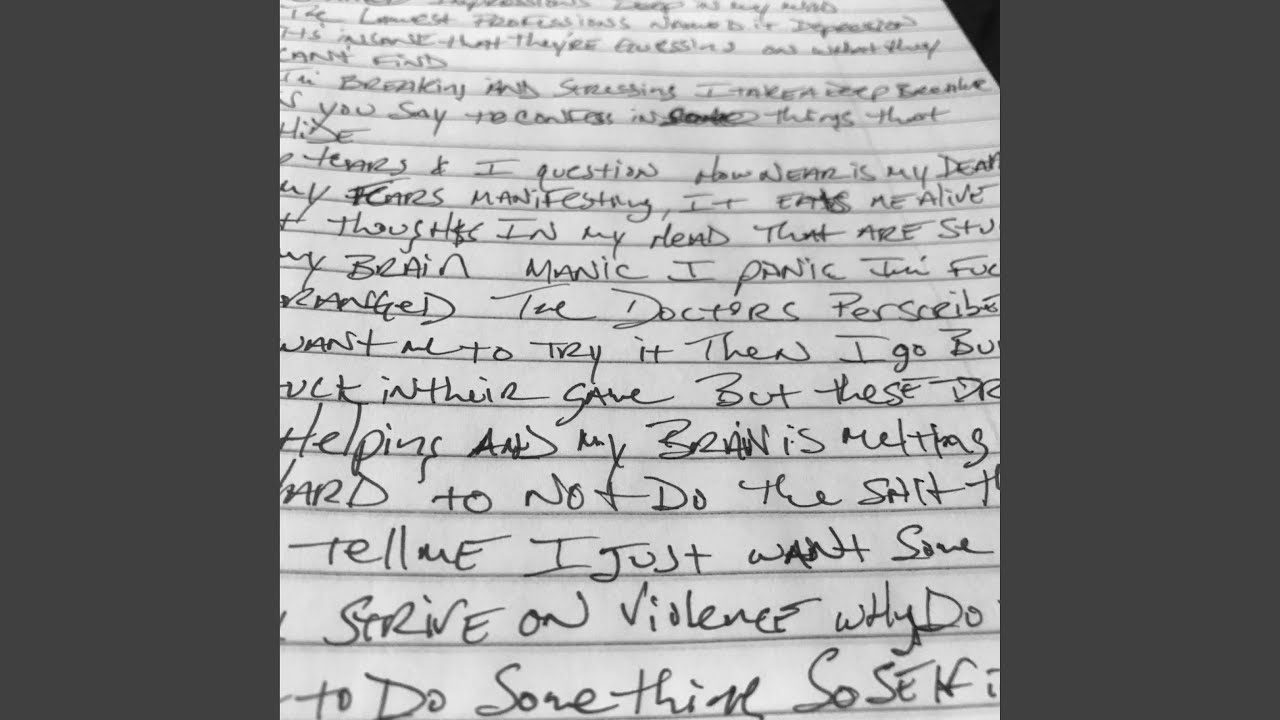 Impressions Deep in my mind
The Lowest Professions Named it Depression
It's insane that they're Guessing on what they
CAN'T FIND
I'm BREAKing AND Stressing I TAKE A DEEP Breathe
you Say to confess in things that
HiDE
TEARS & I question How NEAR is my DEAT
my FEARS MANifesting, It EATS ME Alive
thoughts IN my HEAD THAT ARE STU
my BRAin MANIC I PANIC I'm FUC
RANGED The Doctors Perscribe
WANT me to TRY it Then I go Bu
UCK in their game But these DR
Helping AND my BRAiN is melting
HARD to NOT DO The SHit th
Tell ME I JUST WANT Some
STRIVE ON Violence WHY DO
to Do Something So SElfi